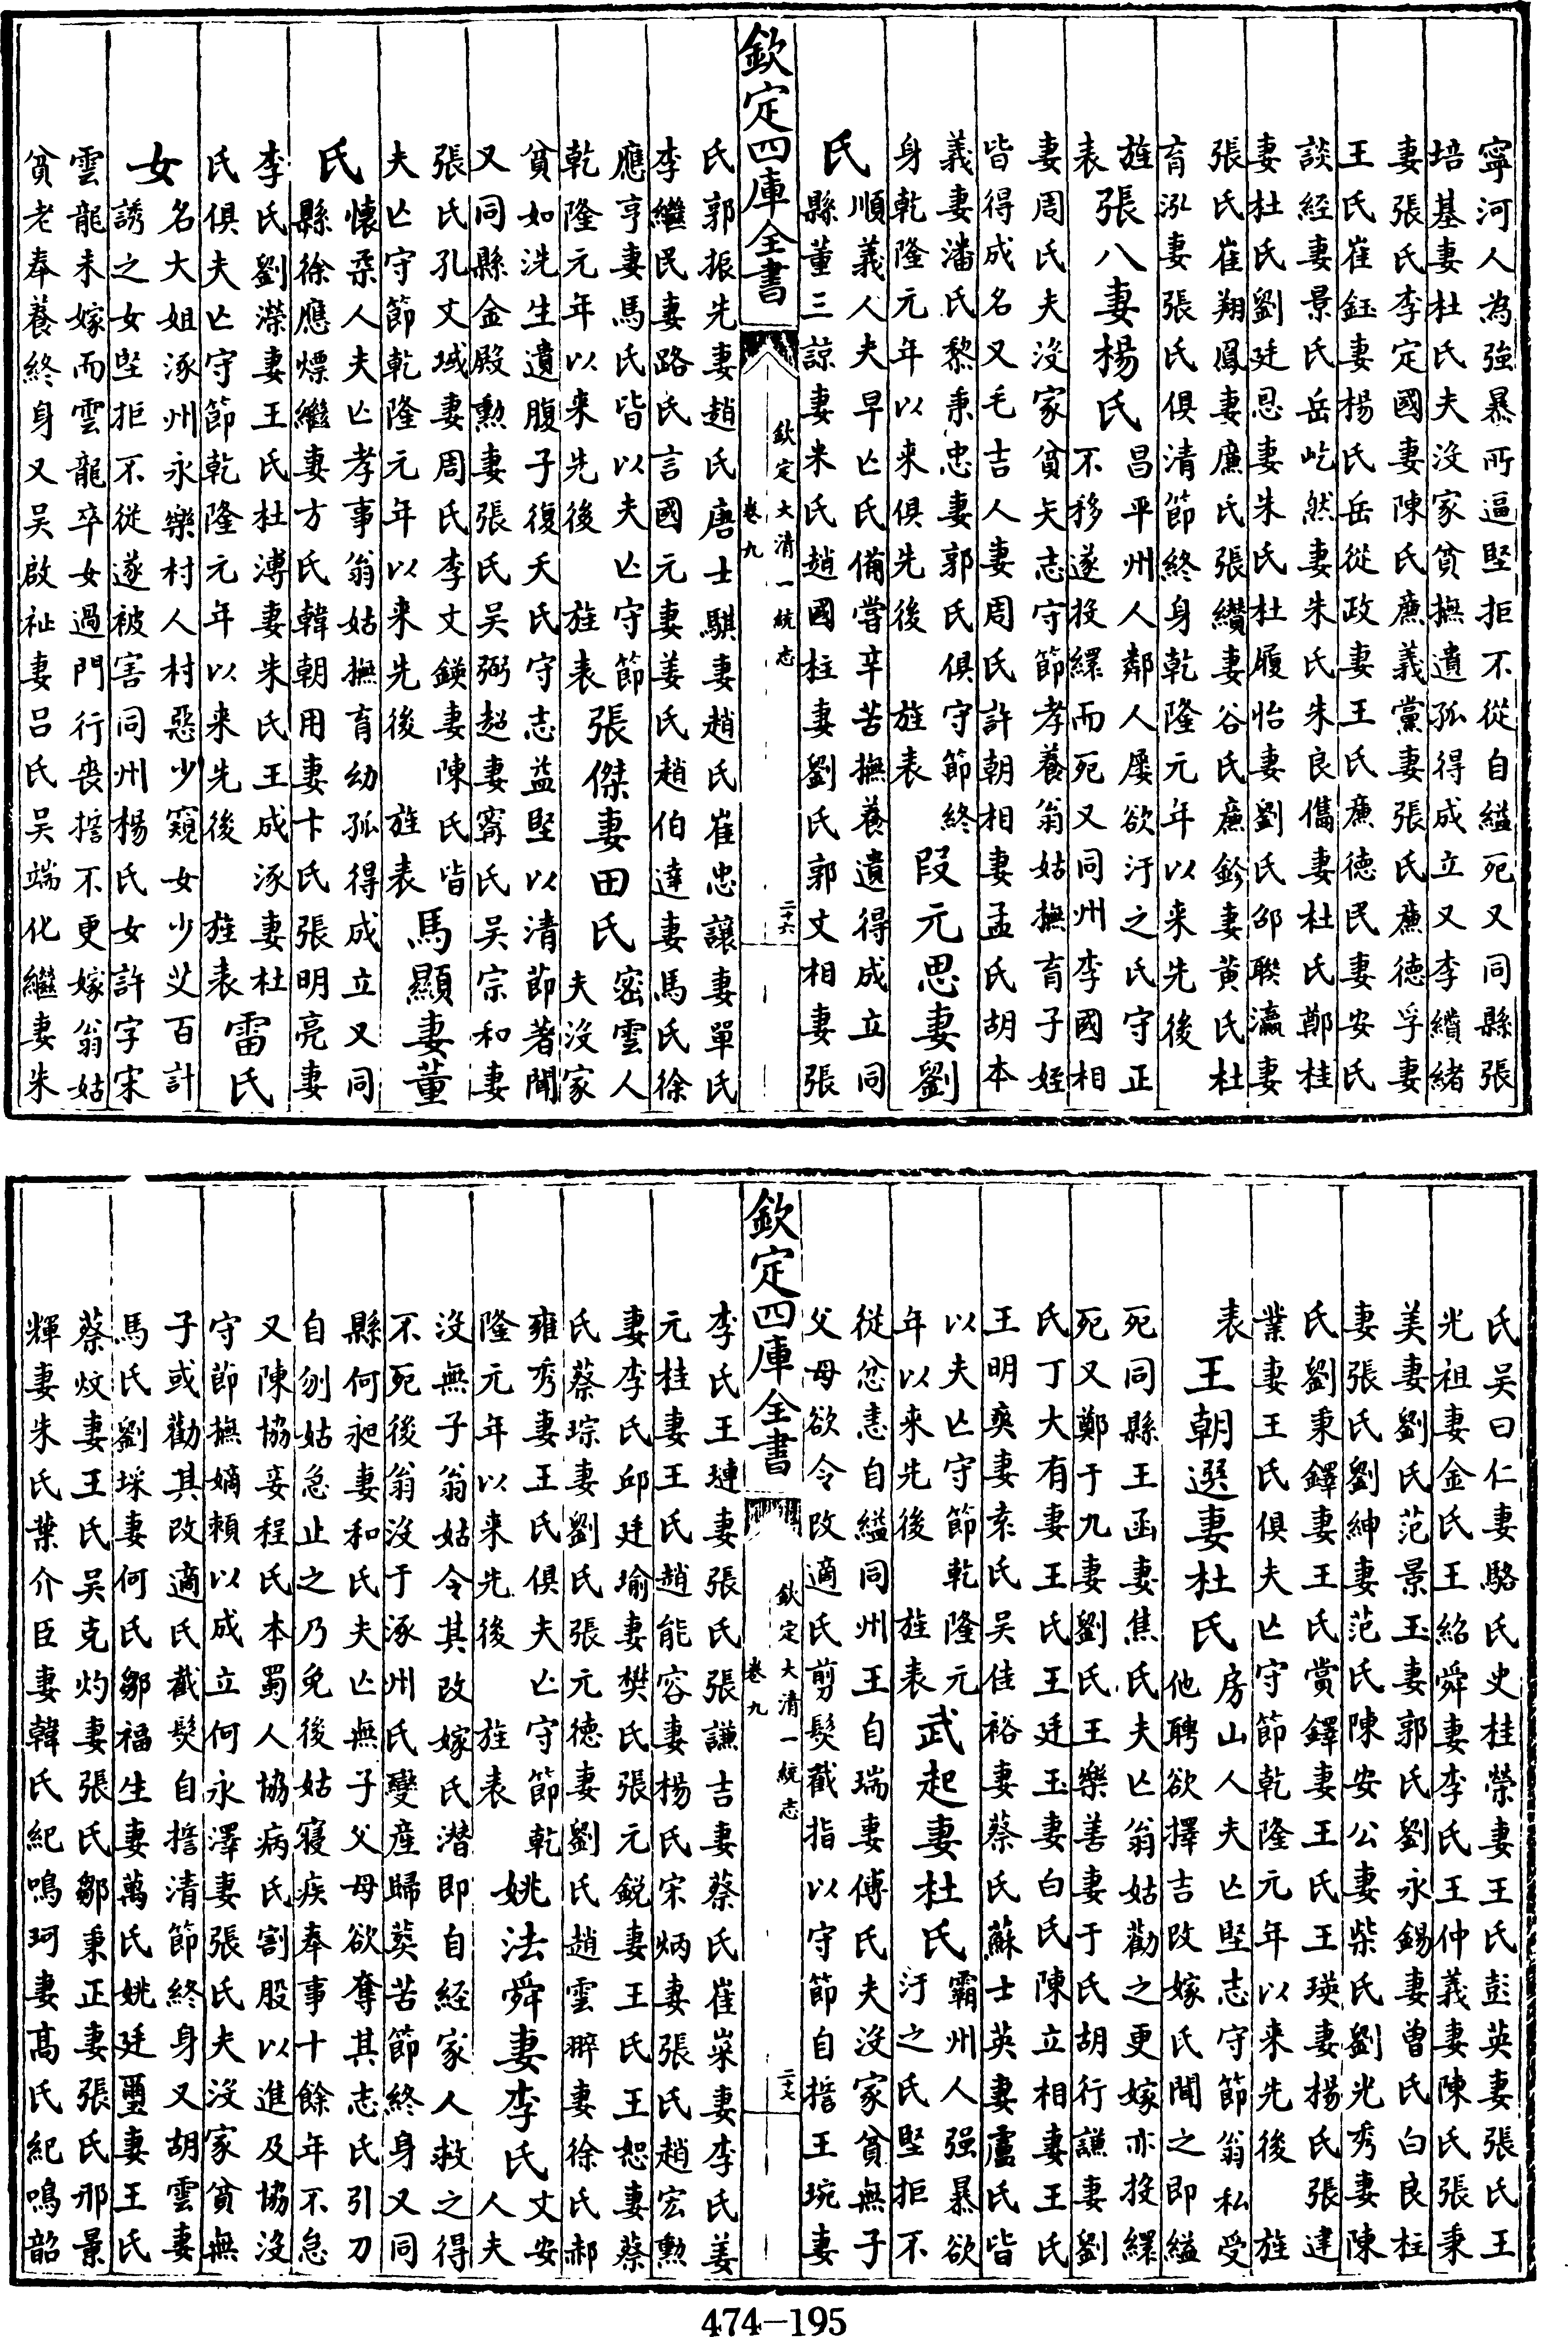 寧河人為強暴所逼堅拒不從自縊死又同縣張
培基妻杜氏夫沒家貧撫遺孤得成立又李纘緒
妻張氏李定國妻陳氏廉義黨妻張氏廉徳孚妻
王氏崔鈺妻楊氏岳從政妻王氏廉徳民妻安氏
談經妻景氏岳屹然妻朱氏朱良儁妻杜氏鄭桂
妻杜氏劉廷恩妻朱氏杜履怡妻劉氏邵聯瀛妻
張氏崔翔鳳妻廉氏張纘妻谷氏廉鈐妻黄氏杜
育泓妻張氏俱清節終身乾隆元年以来先後
旌表 張八妻楊氏 昌平州人鄰人屡欲汙之氏守正
不移遂投繯而死又同州李國相
妻周氏夫沒家貧矢志守節孝養翁姑撫育子姪
皆得成名又毛吉人妻周氏許朝相妻孟氏胡本
義妻潘氏黎秉忠妻郭氏俱守節終
身乾隆元年以来俱先後 旌表 段元思妻劉
氏 順義人夫早亡氏備嘗辛苦撫養遺得成立同
縣董三諒妻米氏趙國柱妻劉氏郭文相妻張
欽定四庫全書
欽定大清一統志
卷九
二十六
氏郭振先妻趙氏唐士騏妻趙氏崔忠讓妻單氏
李繼民妻路氏言國元妻姜氏趙伯達妻馬氏徐
應亨妻馬氏皆以夫亡守節
乾隆元年以来先後 旌表 張傑妻田氏 密雲人
夫沒家
貧如洗生遺腹子復夭氏守志益堅以清節著聞
又同縣金殿勲妻張氏吳弼超妻甯氏吳宗和妻
張氏孔文域妻周氏李文鍈妻陳氏皆
夫亡守節乾隆元年以来先後 旌表 馬顯妻董
氏 懷柔人夫亡孝事翁姑撫育幼孤得成立又同
縣徐應熛繼妻方氏韓朝用妻卞氏張明亮妻
李氏劉濚妻王氏杜溥妻朱氏王成涿妻杜
氏俱夫亡守節乾隆元年以来先後 旌表 雷氏
女 名大姐涿州永樂村人村惡少窺女少艾百計
誘之女堅拒不從遂被害同州楊氏女許字宋
雲龍未嫁而雲龍卒女過門行喪誓不更嫁翁姑
貧老奉養終身又吳啟祉妻呂氏吳端化繼妻朱
氏吳曰仁妻駱氏史桂榮妻王氏彭英妻張氏王
光祖妻金氏王紹舜妻李氏王仲義妻陳氏張秉
美妻劉氏范景玉妻郭氏劉永錫妻曾氏白良柱
妻張氏劉紳妻范氏陳安公妻柴氏劉光秀妻陳
氏劉秉鐸妻王氏賞鐸妻王氏王瑛妻楊氏張建
業妻王氏俱夫亡守節乾隆元年以来先後 旌
表 王朝選妻杜氏 房山人夫亡堅志守節翁私受
他聘欲擇吉改嫁氏聞之即縊
死同縣王函妻焦氏夫亡翁姑勸之更嫁亦投繯
死又鄭于九妻劉氏王樂善妻于氏胡行謙妻劉
氏丁大有妻王氏王廷玉妻白氏陳立相妻王氏
王明奭妻袁氏吳佳裕妻蔡氏蘇士英妻盧氏皆
以夫亡守節乾隆元
年以来先後 旌表 武起妻杜氏 霸州人强暴欲
汙之氏堅拒不
從忿恚自縊同州王自瑞妻傅氏夫沒家貧無子
父母欲令改適氏剪髮截指以守節自誓王琬妻
欽定四庫全書
欽定大清一統志
卷九
二十七
李氏王璉妻張氏張謙吉妻蔡氏崔寀妻李氏姜
元桂妻王氏趙能容妻楊氏宋炳妻張氏趙宏勲
妻李氏邱廷瑜妻樊氏張元鋭妻王氏王恕妻蔡
氏蔡琮妻劉氏張元徳妻劉氏趙雲翀妻徐氏郝
雍秀妻王氏俱夫亡守節乾
隆元年以来先後 旌表 姚法舜妻李氏 文安
人夫
沒無子翁姑令其改嫁氏潜即自經家人救之得
不死後翁沒于涿州氏變産歸葬苦節終身又同
縣何昶妻和氏夫亡無子父母欲奪其志氏引刀
自刎姑急止之乃免後姑寢疾奉事十餘年不怠
又陳協妾程氏本蜀人協病氏割股以進及協沒
守節撫嫡賴以成立何永澤妻張氏夫沒家貧無
子或勸其改適氏截髮自誓清節終身又胡雲妻
馬氏劉埰妻何氏鄒福生妻萬氏姚廷璽妻王氏
蔡炆妻王氏吳克灼妻張氏鄒秉正妻張氏邢景
輝妻朱氏葉介臣妻韓氏紀鳴珂妻高氏紀鳴韶
474-195